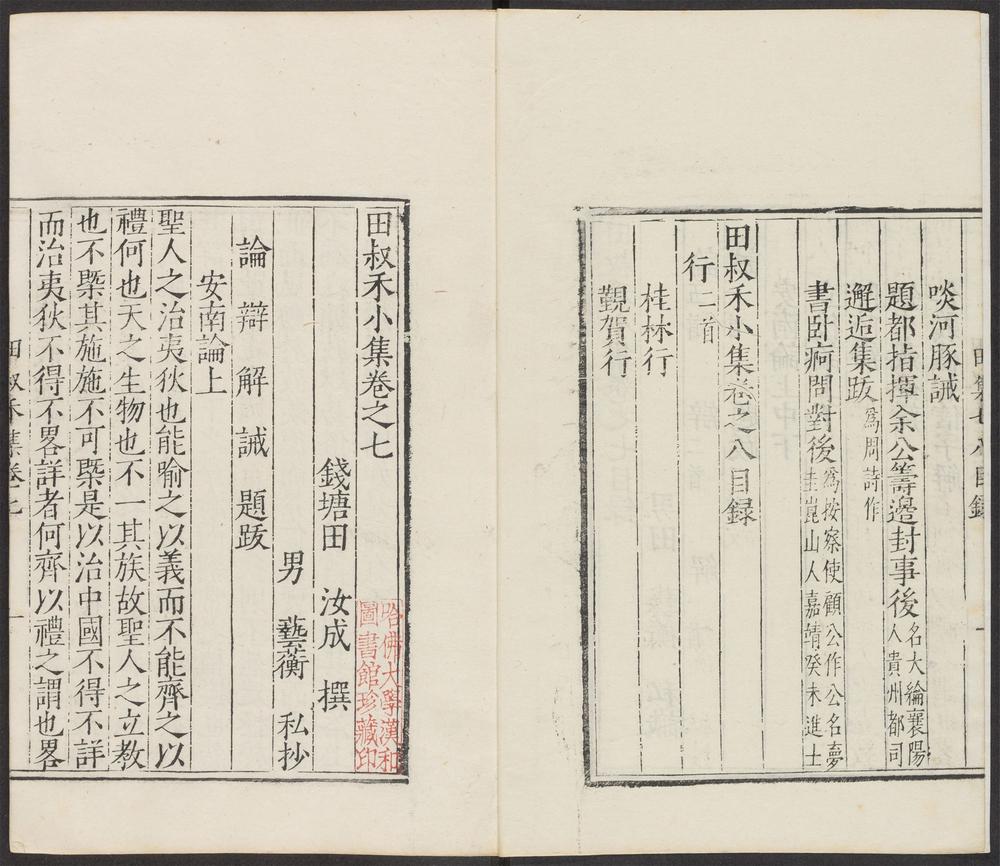 田集七八目錄
啖河豚誡
題都指揮余公籌邊封事後名大綸襄陽
人貴州都司
邂逅集跋為周詩作
書卧痾問對後為按察使顧公作公名夢
圭崑山人嘉靖癸未進士
田叔禾小集卷之八目録
行二首
桂林行
觀賀行
田叔禾小集卷之七
哈佛大學漢和
圖書館珍藏印
錢塘田 汝成 撰
男 藝衡 私抄
論 辯 解 誡 題跋
安南論上
聖人之治夷狄也能喻之以義而不能齊之以
禮何也天之生物也不一其族故聖人之立教
也不槩其施施不可槩是以治中國不得不詳
而治夷狄不得不畧詳者何齊以禮之謂也畧
田叔禾集卷七
一